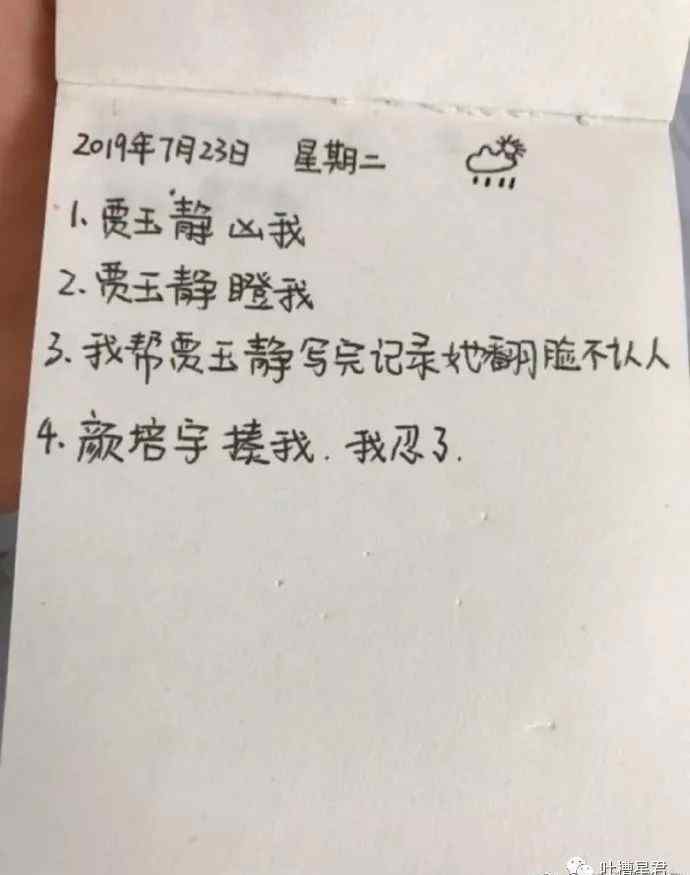 2019年7月23日 星期二
1. 贾玉静凶我
2. 贾玉静瞪我
3. 我帮贾玉静写完记录她翻脸不认人
4. 颜培宇揍我. 我忍了.
吐槽星君